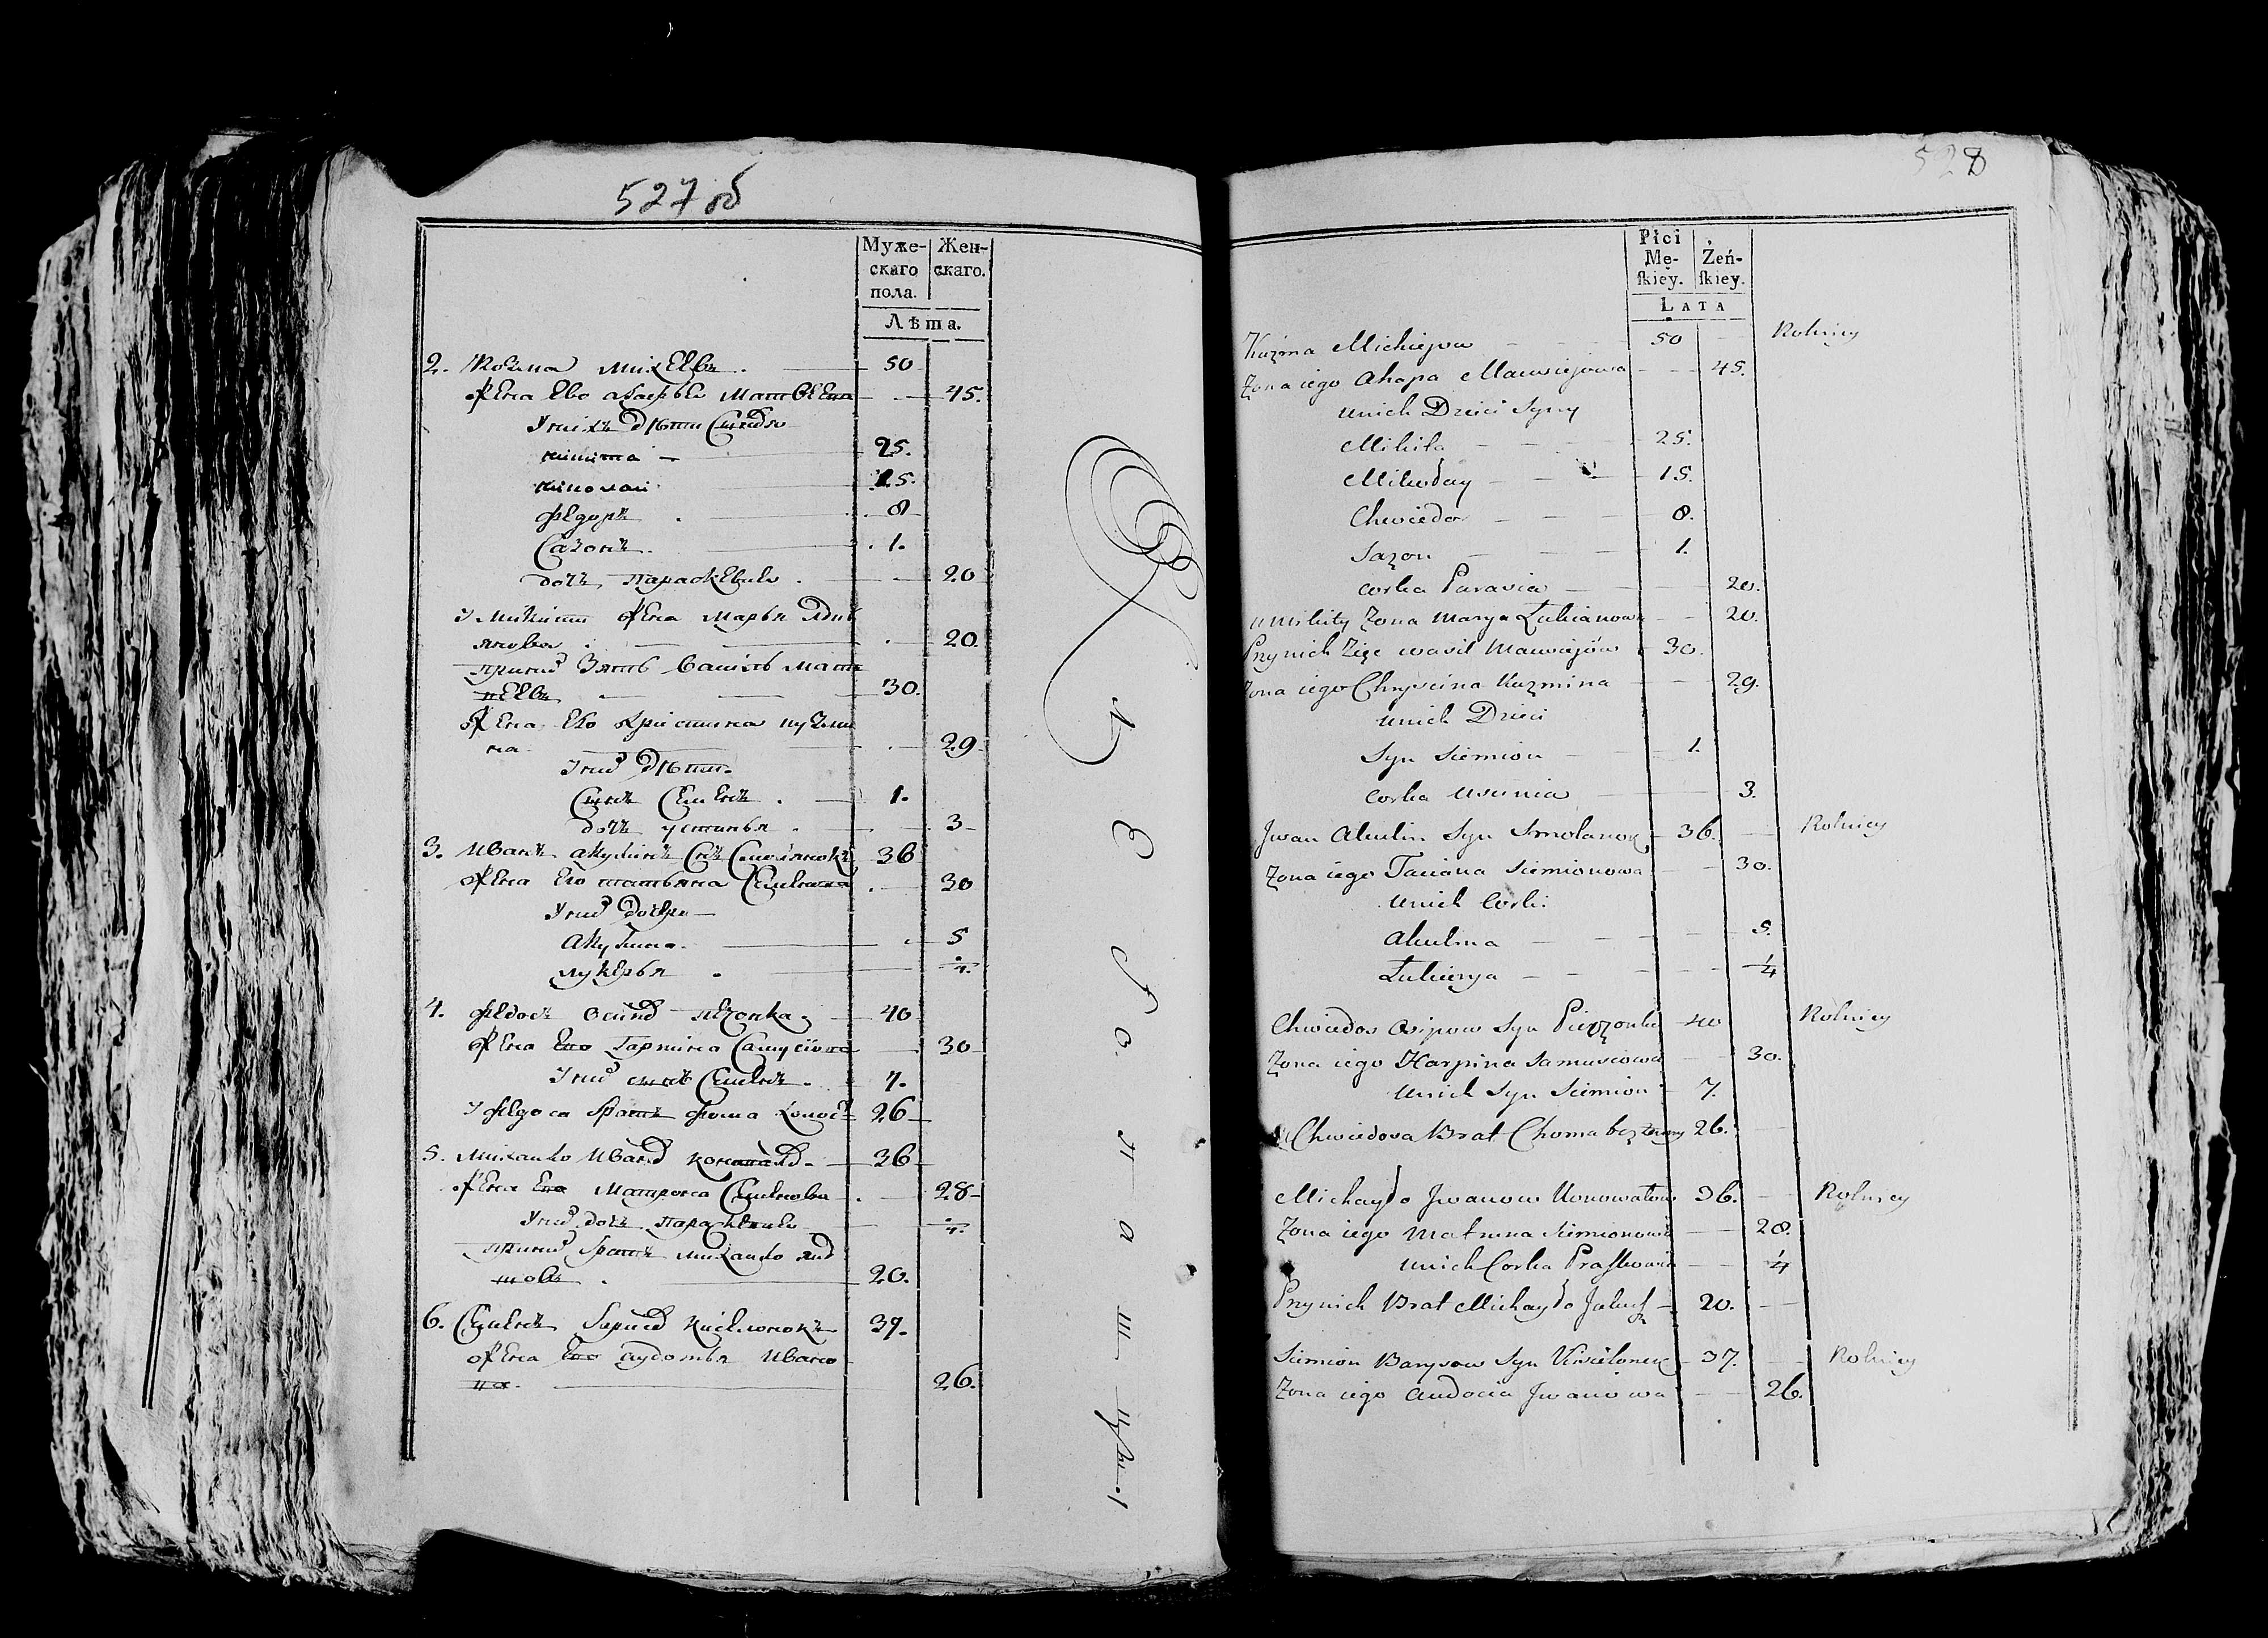 527 об
Муже-
скаго
пола.
Жен-
скаго.
Лѣта.
2. Козма Михеевъ 50
Жена ево Агафья Матвеева 45.
У нихъ дѣти
Никита 25.
Николай 15.
Федоръ 8
Сазонъ 1.
дочь Параскевия 20
У Микиты жена Марья
20.
При них зять Василь Мат
вѣевъ 30.
Жена ево Христина Кузми
на 29.
У них дѣти
Сынъ Семенъ 1.
дочь Устинья 3
3. Иванъ Акулинъ Снъ Смолянокъ 36
Жена его Татьяна Семенова 30
У них дочери
Акулина 5
Лукерья 1/4
4. Федосъ Осипов 40
Жена его Гарпина 30
У них сынъ Семенъ 7.
У Федоса братъ Фома холост 26
5. Михайло Иванов 36
Жена его Матрона Семенова 28
У них дочь Параскевия 1/4
При них братъ Михайло
20.
6. Семенъ Борисов Киселионокъ 37.
Жена его Авдотья Ивано
ва. 26.
528
Płci
Mę-
skiey.
Żeń-
skiey.
LATA
Kuźma Michiejow 50 Rolnicy
Zona iego Ahapa Mawsiejowa 45.
unich Dzieci Syny
Mikita 25.
Mikołay 15.
Chwiedor 8.
Sazon 1.
corka Parasia 20.
u Mikity Zona Marya Łukianowa 20.
Przynich Zięc Wasil Mawsiejów 30.
Zona iego Chryscina Kuzmina 29.
unich Dzieci
Syn Siemion 1.
corka Uscinia 3.
Jwan Akulin Syn Smolanok 36. Rolnicy
Zona iego Taciana Siemionowa 30.
unich Corki
Akulina 5.
Łukierya 1/4
Chwiedos Osipow Syn 40 Rolnicy
Zona iego Harpina Samusiowa 30.
Unich Syn Siemion 7.
u Chwiedosa Brat Choma bezżenny 26.
Michayło Jwanow Konowałow 36. Rolnicy
Zona iego Matruna Siemionowa 28.
unich Corka Praskowia 1/4
Przynich Brat Michayło 20.
Siemion Barysow Syn Kisielonek 37. Rolnicy
Zona iego Audocia Jwanowa 26.